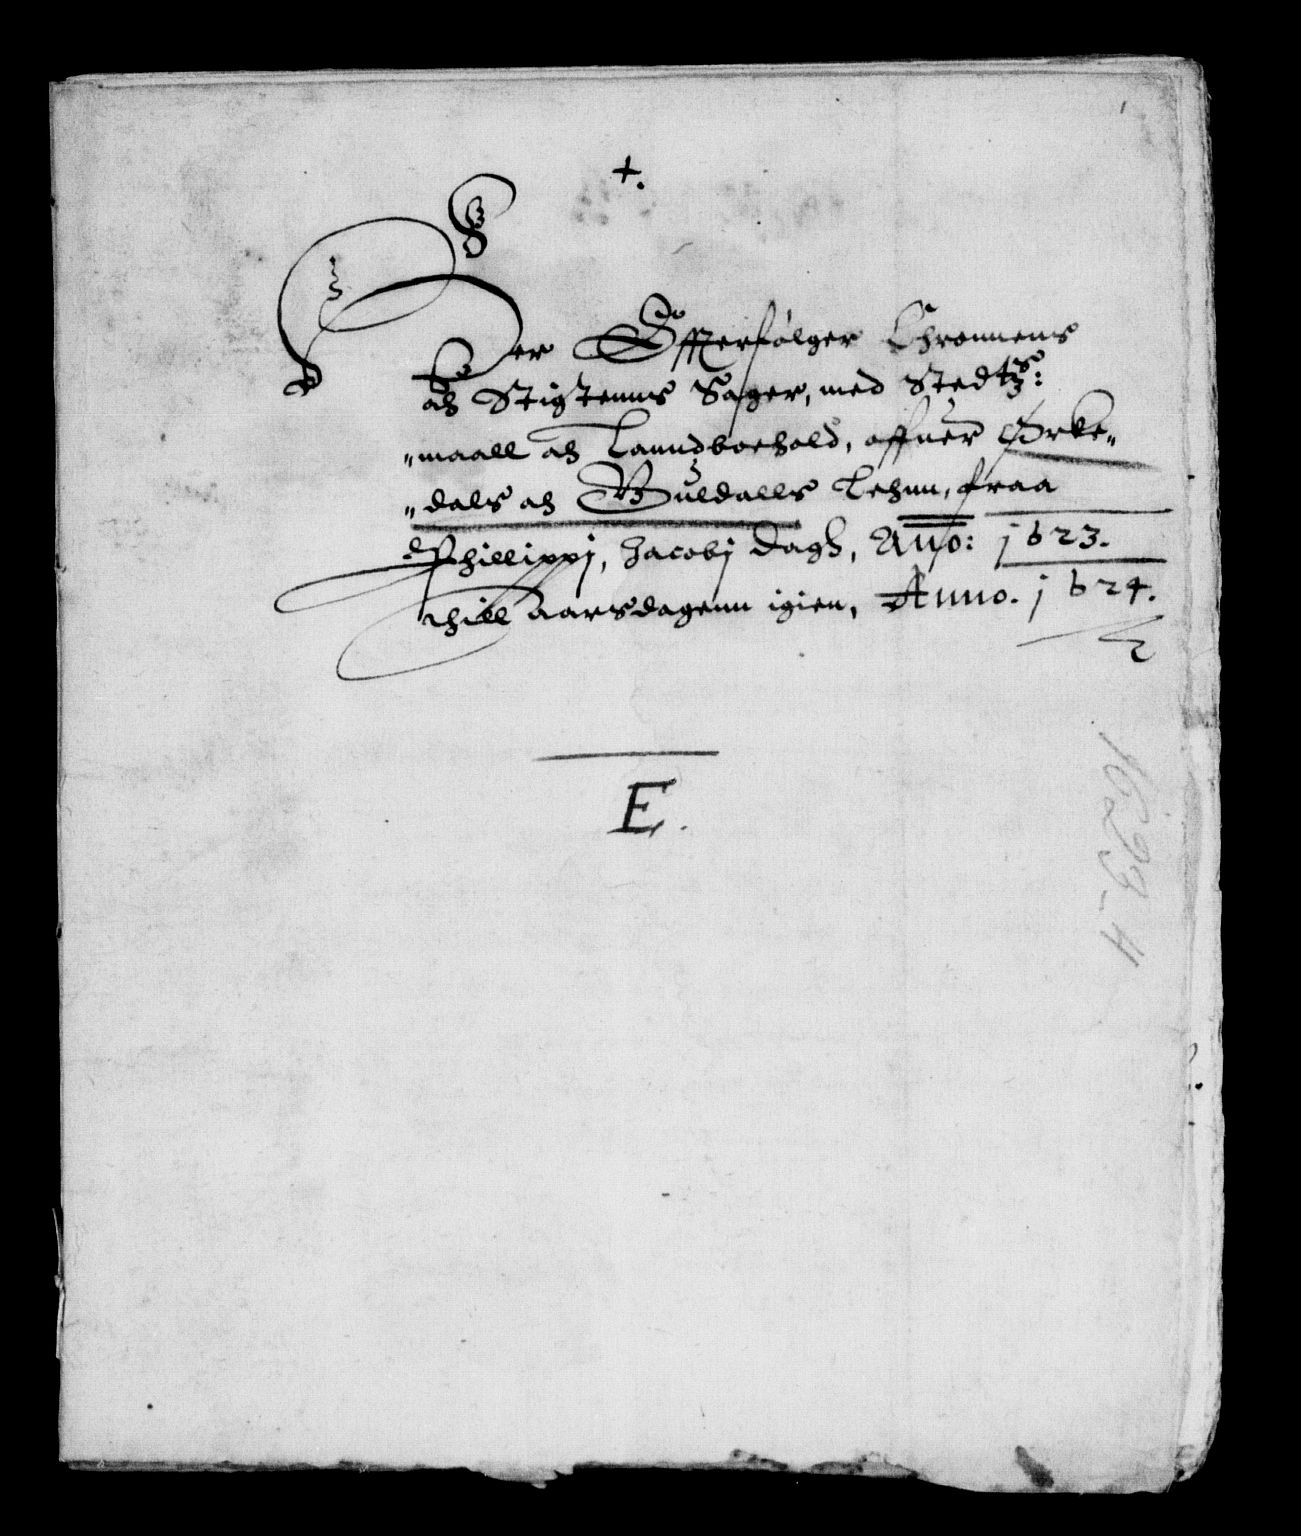 +.
Her Effterfølger Chronnens
och Stigtenns Sager, med Stedtz:
"maall och Lanndboehold, offuer Ørke"
"dals och Guldalls Lehnn, fraa
Phillippj, Jacobj dagh, Anno: 1623.
thill Aarsdagenn igien, Anno. 1624.
E.
1623-4